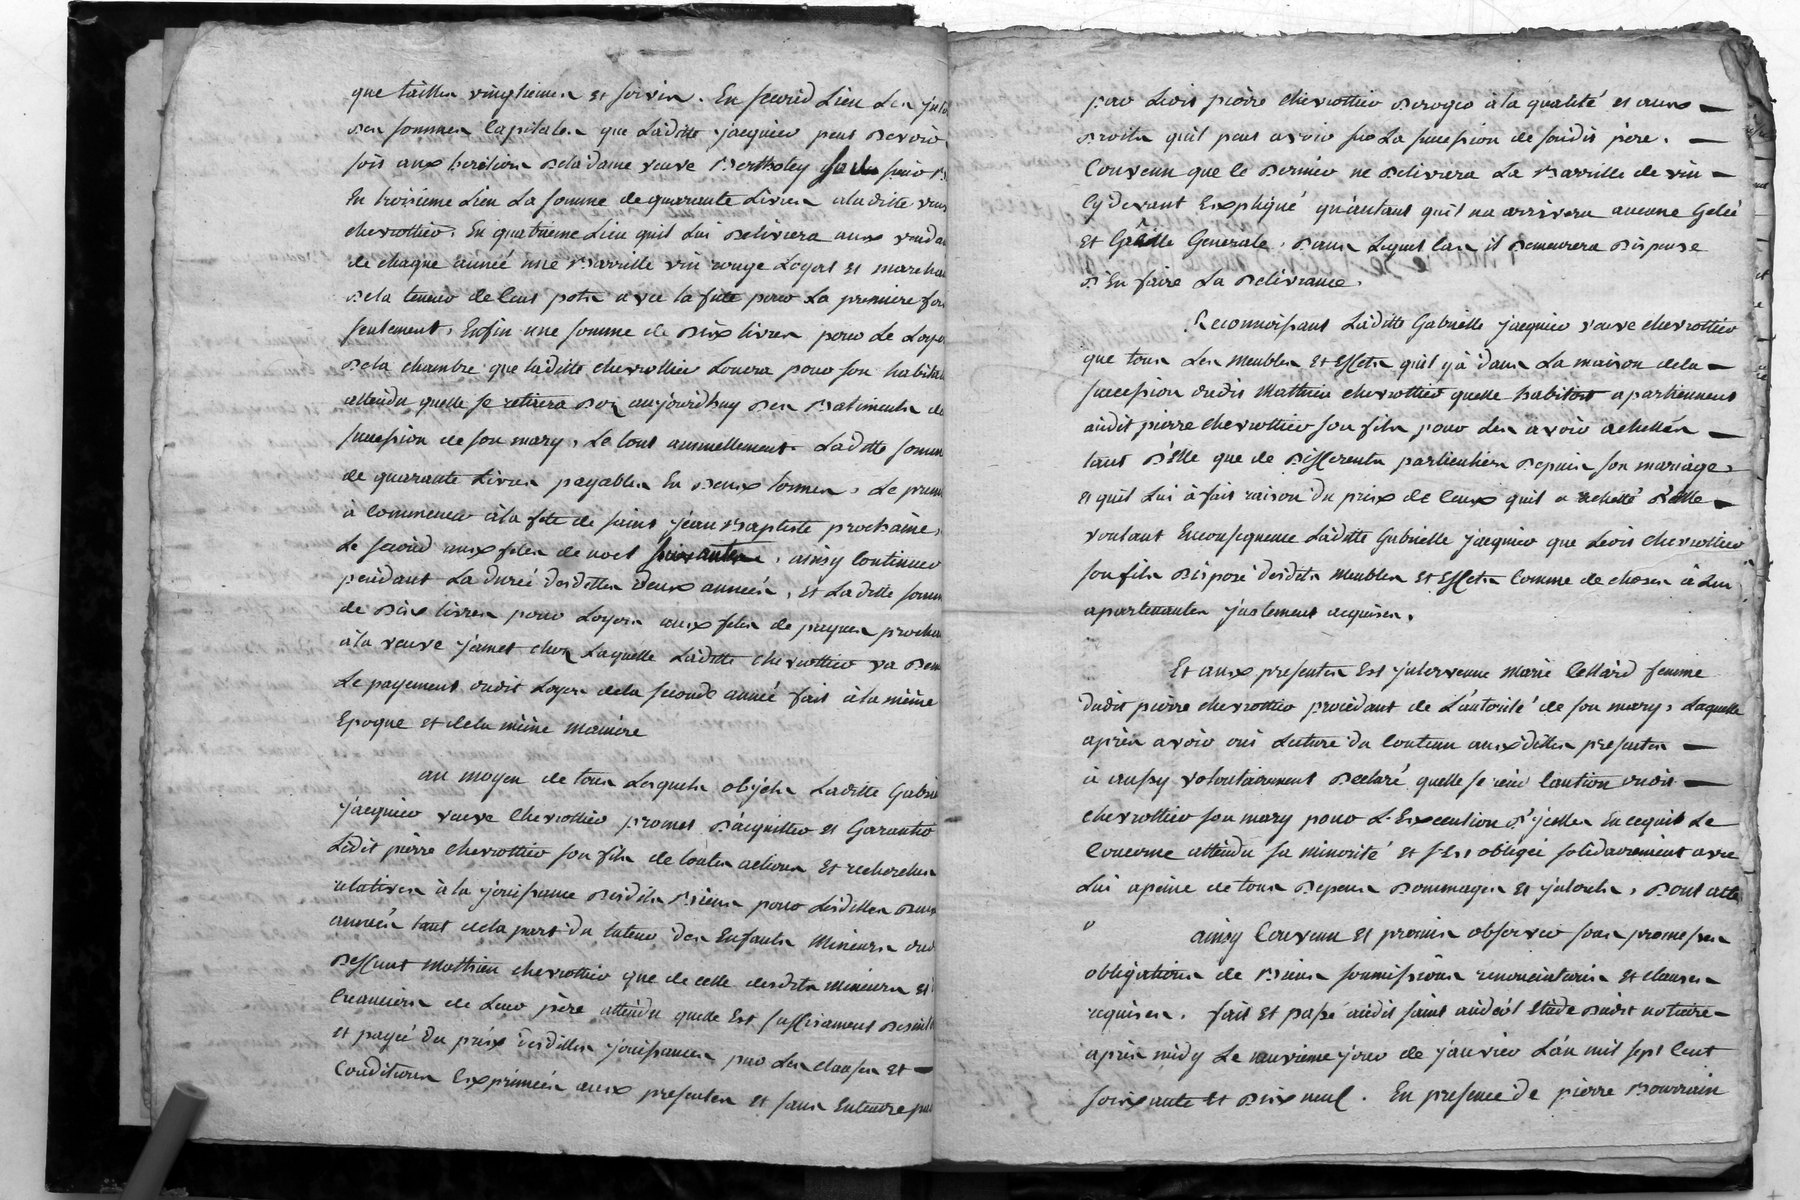 que tailles vingtiemes et servis. En second Lieu Les
des sommes Capitales que Laditte jacquier peut devoir
soit aux heritiers deladame veuve Bertholey
En troisieme Lieu La somme de quarante Livres aladitte
chevrottier. En quatrieme Lieu quil Lui delivrera aux
de chaque année une Barrille vin rouge Loyal et
dela teneur de Cent pots avec la fute pour La premiere fois
seulement. Enfin une somme de dix livres pour Le
dela chambre que laditte chevrottier Louera pour son
attendu quelle se retirera des aujourdhuy des Batiments de
succession de son mary, Le tout annuellement. Laditte
de quarante Livres payables En deux termes, Le
à commencer àla fete de saint jean Baptiste prochaine,
Le second aux fetes de noel, ainsy Continuer
pendant La durée desdittes deux années, et Laditte
de dix livres pour Loyers aux fetes de paques
àla veuve jamet chez Laquelle Laditte chevrottier va
Le payement dudit Loyer dela seconde année fait àla même
Epoque et dela même maniere
au moyen de tous Lesquels objets Laditte
jacquier veuve Chevrottier promet d'acquitter et Garantir
Ledit pierre chevrottier son fils de toutes actions et recherches
relatives à la jouissance desdits Biens pour Lesdittes
années tant dela part du tuteur des Enfants Mineurs
deffunt Mathieu chevrottier que de celle desdits mineurs et
Creanciers de Leur père attendu quelle Est suffisament
et payée du prix desdittes jouissances par Les clauses et
Conditions Exprimées aux presentes et sans Entendre
pour Ledit pierre chevrottier deroger àla qualité et aux
droits quil peut avoir sur La succession de sondit père.
Convenu que le dernier ne delivrera La Barrille de vin
Cy devant Expliqué qu'autant quil na arrivera aucune Gelée
et Grêlle Generale, dans Lequel Cas il demeurera dispensé
d'En faire La delivrance.
Reconnoissant Laditte Gabrielle jacquier veuve chevrottier
que tous Les meubles et Effets quil y à dans La maison dela
succession dudit Mathieu chevrottier quelle habitoit apartiennent
audit pierre chevrottier son fils pour Les avoir achettés
tant d'Elle que de differents particuliers depuis son mariage
et quil Lui à fait raison du prix de Ceux quil a achetté d'elle
voulant Enconsequence Laditte Gabrielle jacquier que Ledit chevrottier
son fils dispose desdits meubles et Effets Comme de choses à Lui
apartenantes justement acquises.
Et aux presentes Est jntervenue Marie Cellard femme
dudit pierre chevrottier procedant de L'autorité de son mary, Laquelle
après avoir oui Lecture du Contenu auxdittes presentes
à aussy volontairement declaré quelle se rend Caution dudit
chevrottier son mary pour L'Execution d'jcelles En cequit Le
Concerne attendu sa minorité et s'Est obligée solidairement avec
Lui apeine de tous depens dommages et jnterets, dont acte
ainsy Convenu et promis observer sous promesses
obligations de Biens soumissions renonciations et clauses
requises. fait et passé audit saint andéol Etude dudit notaire
après midy Le neuvieme jour de janvier L'an mil sept Cent
soixante et dix neuf. En presence de pierre